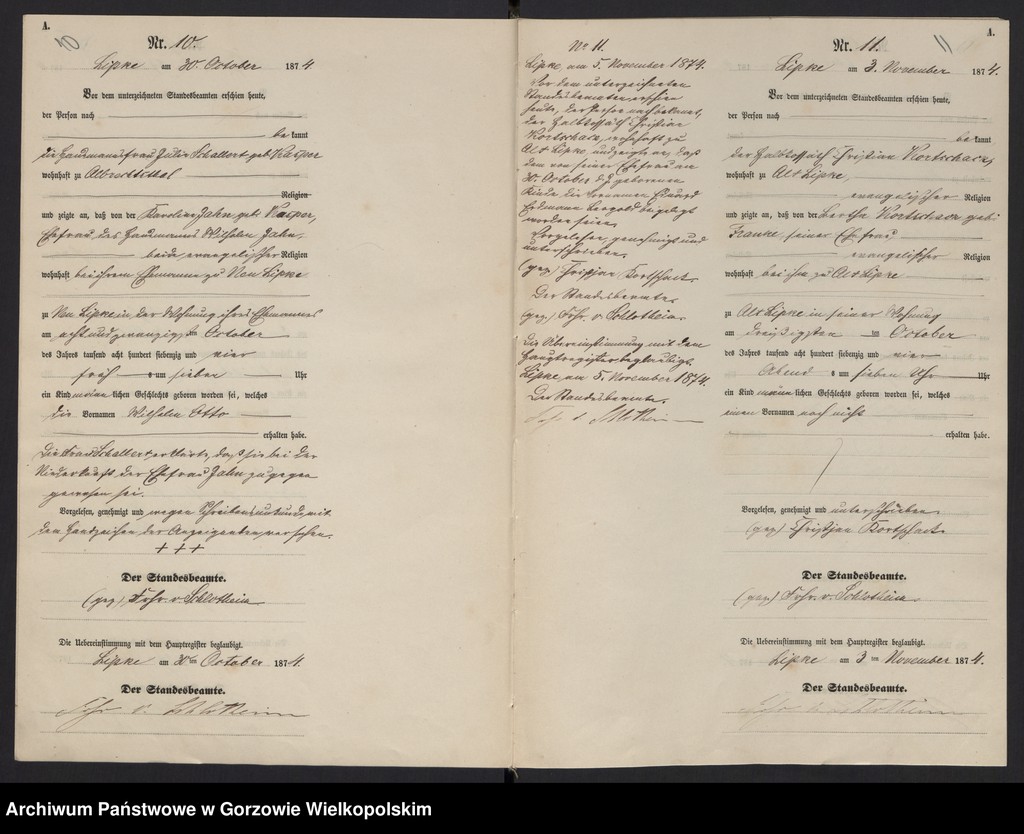 A.
10
Nr. 10.
Lipke am 30. October 1874
Vor dem unterzeichneten Standesbeamten erschien heute,
der Person nach
be kannt
die Hausmannsfrau Julie Schallert geb. Kasper
wohnhaft zu Albrechtsthal
Religion
und zeigte an, daß von der Karoline Jahn, geb. Kasper,
Ehefrau des Hausmanns Wilhelm Jahn,
beide evangelischer Religion
wohnhaft bei ihrem Ehemanne zu Neu Lipke
zu Neu Lipke in der Wohnung ihres Ehemannes
am acht und zwanzigsten October
des Jahres tausend acht hundert siebenzig und vier
früh um sieben Uhr
ein Kind männlichen Geschlechts geboren worden sei, welches
die Vornamen Wilhelm Otto
erhalten habe.
Die Frau Schallert erklärte, daß sie bei der
Niederkunft der Ehefrau Jahn zugegen
gewesen sei.
Vorgelesen, genehmigt und wegen Schreibensunkunde mit
dem Handzeichen der Anzeigenden versehen.
+++
Der Standesbeamte.
(gez) Frhr. v. Schlotheim
Die Uebereinstimmung mit dem Hauptregister beglaubigt.
Lipke am 30ten October 1874.
Der Standesbeamte.
Frhr v. Schlotheim
No 11.
Lipke am 5. November 1874.
Vor dem unterzeichneten
Standesbeamten erschien
heute, der Person nach bekannt,
der Halbkossäth Christian
Kortschack, wohnhaft zu
Alt Lipke und zeigte an, daß
dem von seiner Ehefrau am
30. October d. J. geborenen
Kinde die Vornamen Eduard
Erdmann Leopold beigelegt
worden seien.
Vorgelesen, genehmigt und
unterschrieben.
(gez) Christjan Kortschack
Der Standesbeamte
(gez) Frhr. v. Schlotheim.
Die Übereinstimmung mit dem
Hauptregister beglaubigt.
Lipke, am 5. November 1874.
Der Standesbeamte.
Frhr. v. Schlotheim
A.
Nr. 11.
11
Lipke am 3. November 1874.
Vor dem unterzeichneten Standesbeamten erschien heute,
der Person nach
be kannt
der Halbkossäth Christian Kortschack,
wohnhaft zu Alt Lipke,
evangelischer Religion
und zeigte an, daß von der Bertha Kortschack geb.
Franke, seiner Ehefrau
evangelischer Religion
wohnhaft bei ihm zu Alt Lipke
zu Alt Lipke in seiner Wohnung
am dreißigsten ten October
des Jahres tausend acht hundert siebenzig und vier
Abend s um sieben Uhr Uhr
ein Kind männlichen Geschlechts geboren worden sei, welches
einen Vornamen noch nicht
erhalten habe.
Vorgelesen, genehmigt und unterschrieben
(gez) Christjan Kortschack
Der Standesbeamte.
(gez) Frhr. v. Schlotheim
Die Uebereinstimmung mit dem Hauptregister beglaubigt.
Lipke am 3 ten November 1874.
Der Standesbeamte.
Frhr v. Schlotheim
Archiwum Państwowe w Gorzowie Wielkopolskim